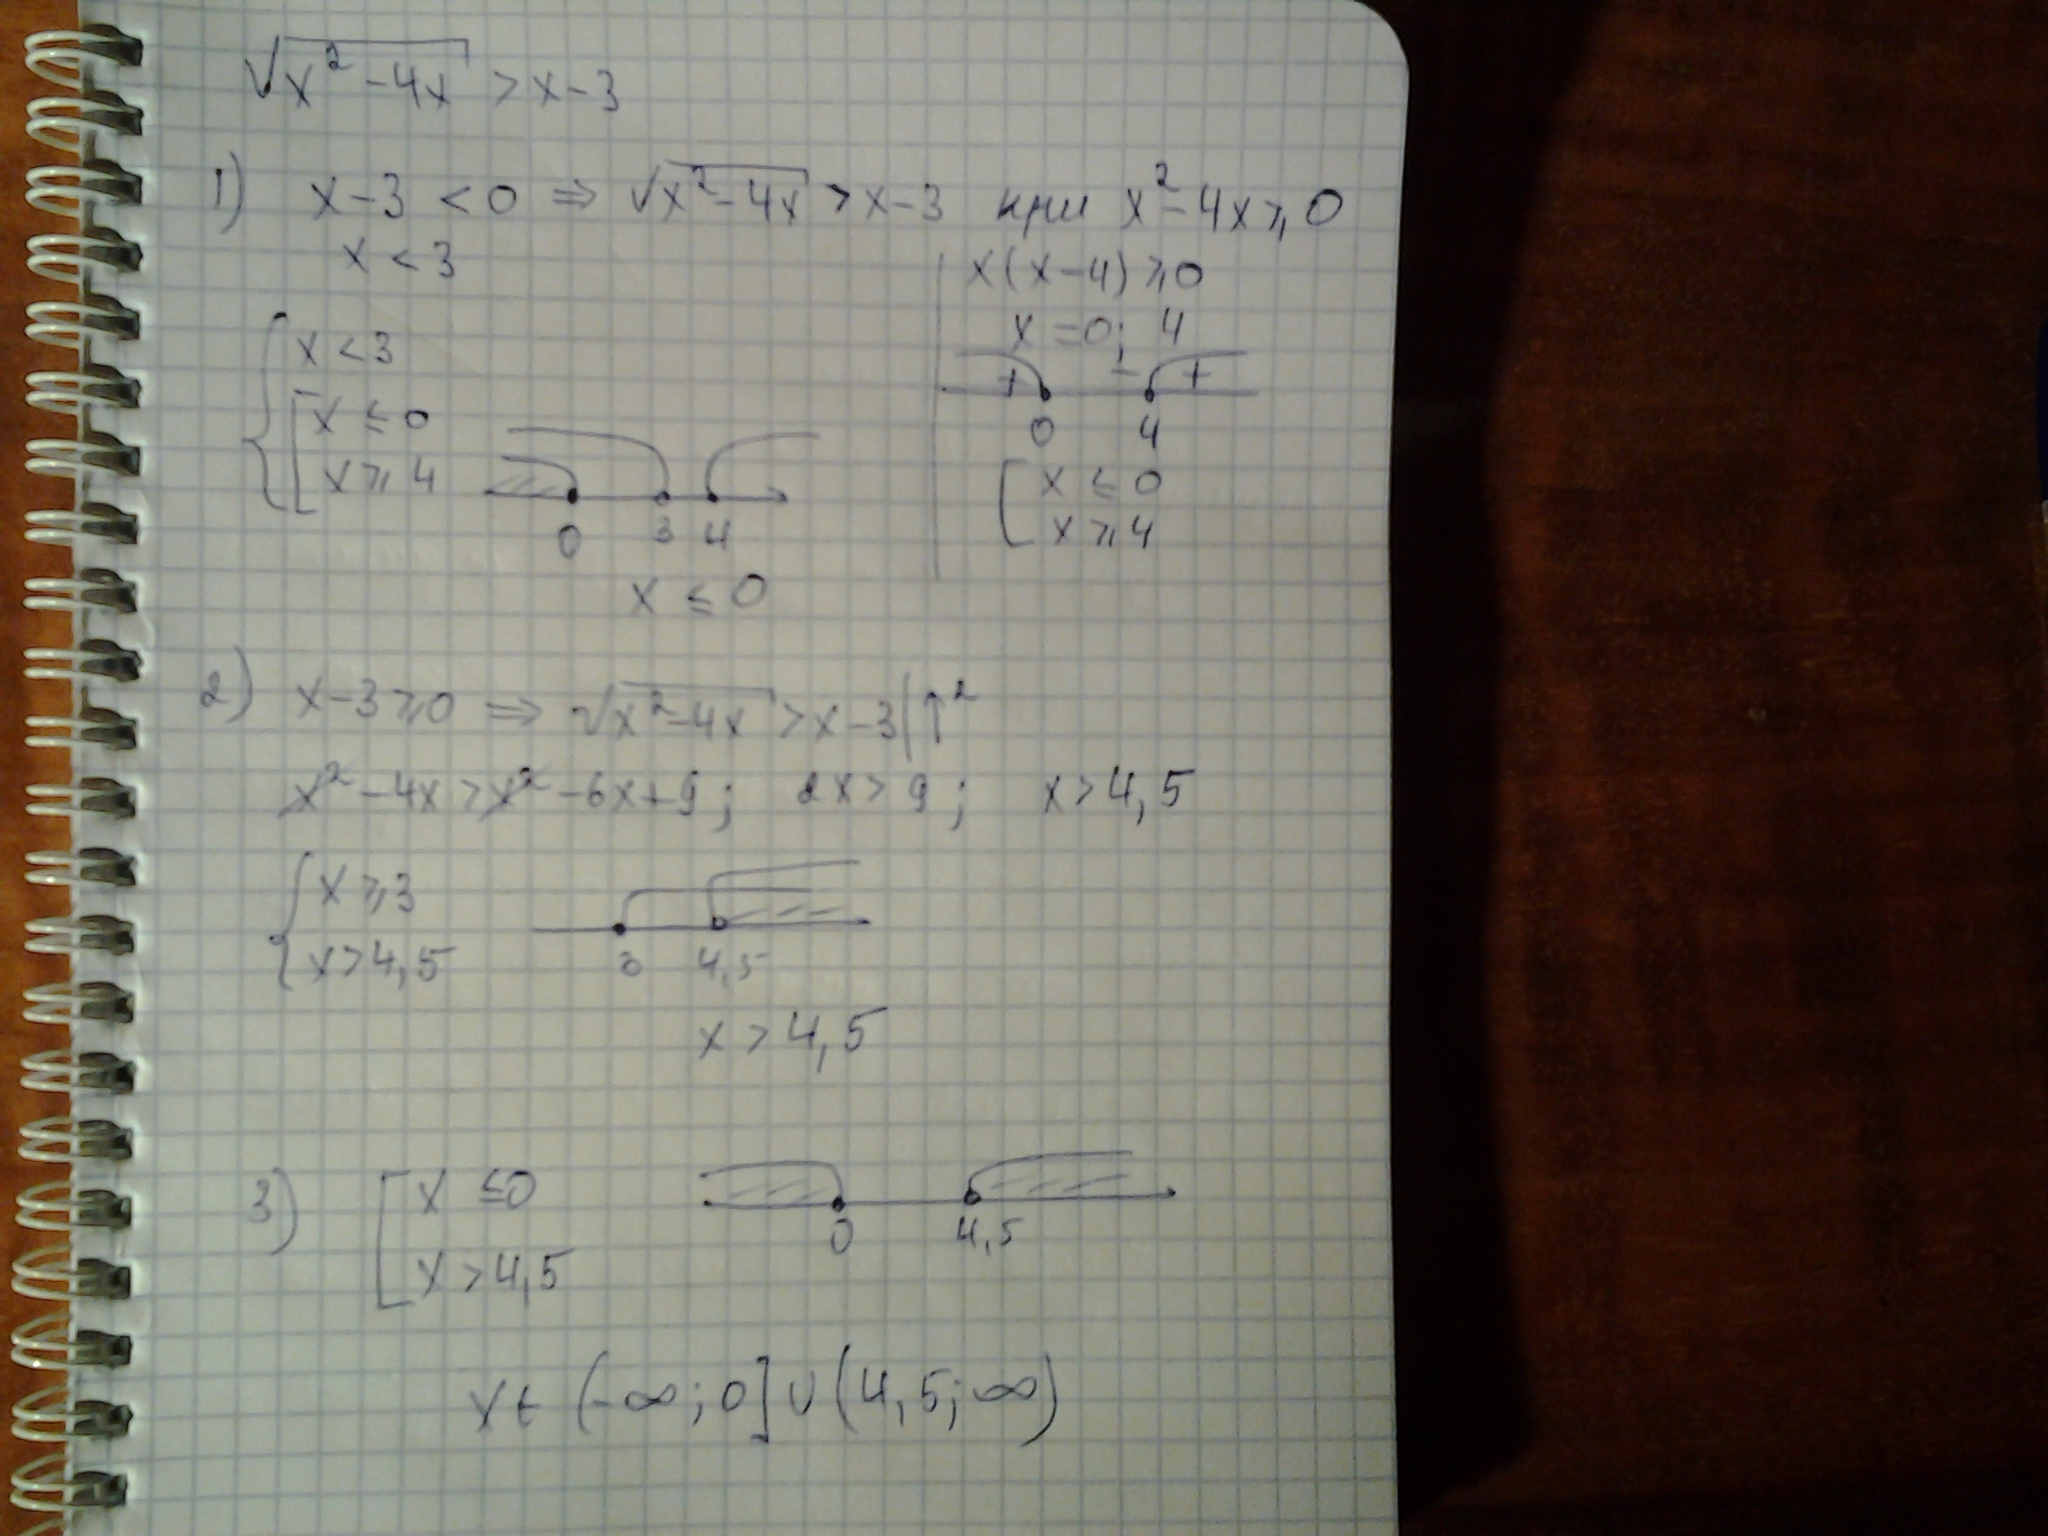 √(x² - 4x) > x - 3
1) x - 3 < 0 ⇒ √(x² - 4x) > x - 3 при x² - 4x ⩾ 0
x < 3
x(x - 4) ⩾ 0
x = 0; 4
+ - +
0 4
[ x ≤ 0
x ⩾ 4
{ x < 3
[ x ≤ 0
x ⩾ 4
0 3 4
x ≤ 0
2) x - 3 ⩾ 0 ⇒ √(x² - 4x) > x - 3 | ↑²
x² - 4x > x² - 6x + 9; 2x > 9; x > 4,5
{ x ⩾ 3
x > 4,5
3 4,5
x > 4,5
3) [ x ≤ 0
x > 4,5
0 4,5
x ∈ (-∞; 0] ∪ (4,5; ∞)